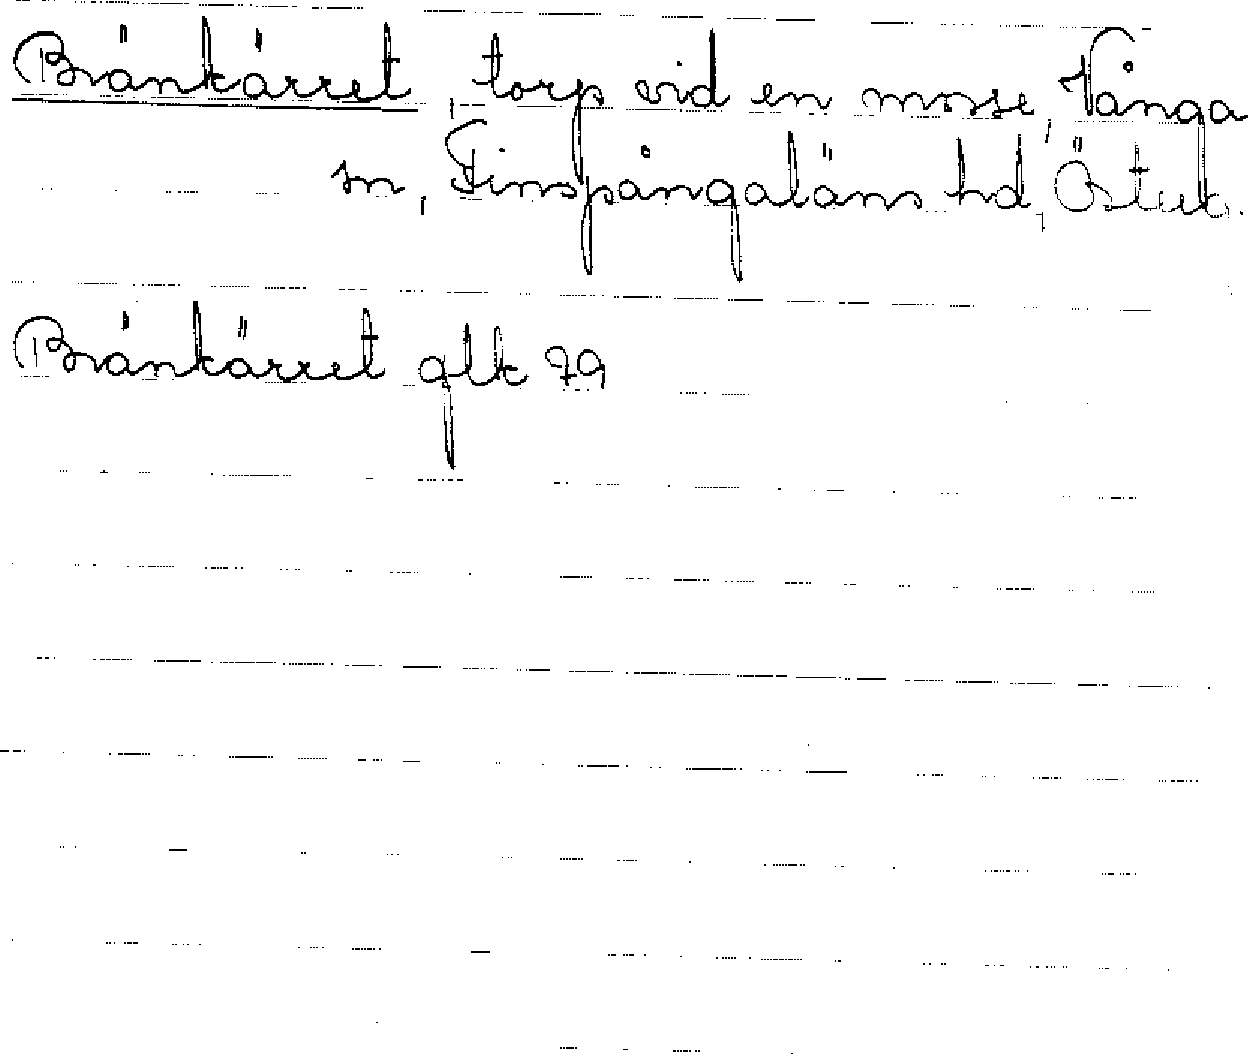 Bränkärret, torp vid en mosse, Vånga
sn, Finspångaläns hd, Östergötl.
Bränkärret glk 79